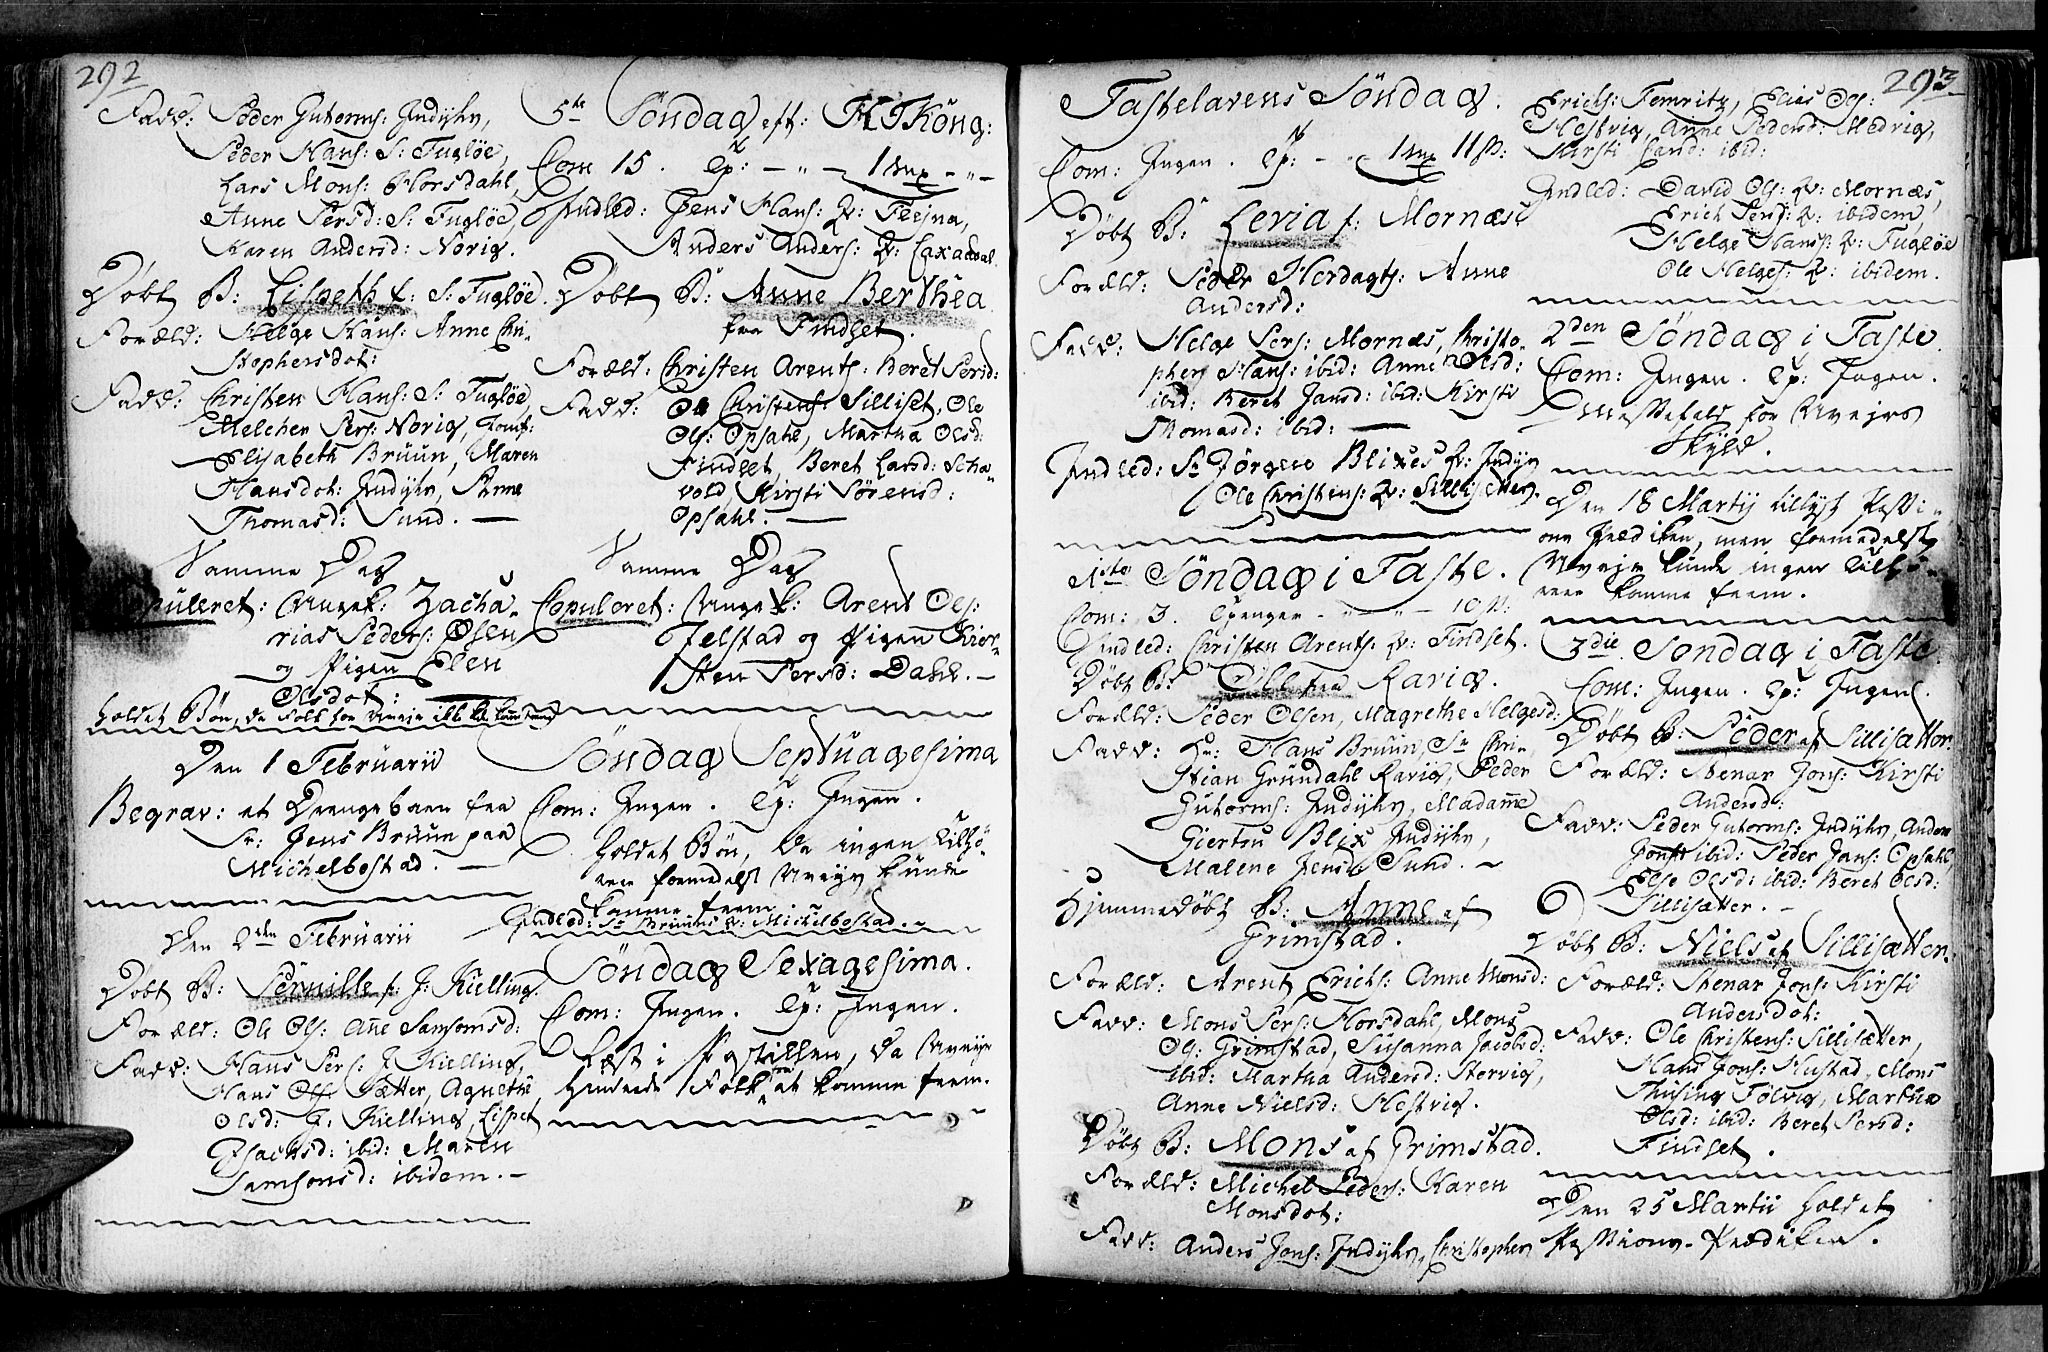 292
Fadd: Peder Gutorms: Indÿhr,
Peder Hans: S: Fugløe,
Lars Mons: Horsdahl,
Anne Persd: S: Fugløe,
Karen Andersd: Norvig.
Døbt B: Lisbeth f: S: Fugløe.
Foræld: Helge Hans: Anne Chri-
stophersdot:
Fadd: Christen Hans: S: Fugløe,
Melcher Pers: Norvig, Jomf:
Elisabeth Brüün, Maren
Hansdot: Indÿhr, Anne
Thomasd: Sund. —
Samme Dag
Copuleret: Ungek: Zacha-
rias Peders: Olsen
og Pigen Elen
Olsdot:
holdet Bøn, da Folk for Uveyr ikke kunde komme frem
Den 1 Februarii
Begrav: et Drengebarn fra
Sr: Jens Brüün paa
Michelbostad. —
Den 2den Februarii
Døbt B: Pernille f: J: Kielling.
Foræld: Ole Ols: Anne Samsonsd:
Fadd: Hans Pers: J: Kielling,
Hans Ols: Sætter, Agnethe
Olsd: J: Kielling, Lisbet
Isachsd: ibid: Maren
Samsonsd: ibidem. —
5te Søndag eft: H 3 Kong:
Com 15. Tp: — „ — 1 mx — „ —
Indled: Jens Hans: Q: Fleina,
Anders Anders: Q: Laxadal.
Døbt B: Anne Berthea
fra Findset.
Foræld: Christen Arents: Beret Persd:
Fadd: Ole Christens: Silliset, Ole
Ols: Opsahl, Martha Olsd:
Findset, Beret Larsd: Scha-
vold, Kirsti Sørensd:
Opsahl. —
Samme Dag
Copuleret: Ungek: Arent Ols:
Jelstad og Pigen Kier-
sten Persd: Dahl. —
Søndag Septuagesima
Com: Ingen. Tp: Ingen.
holdet Bøn, da ingen Tilhø-
rere formedelst Uveyr kunde
komme frem. —
Indled: Sr: Brüüns Q: Michelbostad. —
Søndag Sexagesima.
Com: Ingen. Tp: Ingen.
Læst i Postillen, da Uveyr
hindrede Folk fra at komme frem.
293
Fastelavens Søndag.
Com: Ingen. Tp: — 1 mx 11 ß:
Døbt B: Levia f: Mornæs
Foræld: Peder Hordagts: Anne
Andersd:
Fadd: Helge Pers: Mornæs, Christo-
pher Hans: ibid: Anne Olsd:
ibid: Beret Jansd: ibid: Kirsti
Thomasd: ibid: —
Indled: Sr Jørgen Blixes Q: Indÿhr
Ole Christens: Q: Sillisetter.
1ste Søndag i Faste.
Com: 3. Tpenger — „ — „ — 10 ß:
Indled: Christen Arents: Q: Findset.
Døbt B: Oll fra Ravig.
Foræld: Peder Olsen, Magrethe Helgesd:
Fadd: Hr: Hans Brüün, Sr Chri-
stian Grundahl Ravig, Peder
Gutorms: Indÿhr, Madame
Giertru Blix Indÿhr,
Malene Jensd: Sund. —
Hjemmedøbt B: Anne af
Grimstad.
Foræld: Arent Erichs: Anne Monsd:
Fadd: Mons Pers: Horsdahl, Mons
Ols: Grimstad, Susanna Jacobsd:
ibid: Martha Andersd: Storvig,
Anne Nielsd: Hestvig.
Døbt B: Mons af Grimstad.
Foræld: Michel Peders: Karen
Monsdot:
Fadd: Anders Jons: Indÿhr, Christopher
Erichs: Femritz, Elias Ols:
Hestvig, Anne Pedersd: Medvig,
Kirsti Land: ibid:
Indled: David Ols: Q: Mornæs,
Erich Pers: Q: ibidem,
Helge Hans: Q: Fugløe
Ole Helges: Q: ibidem.
2den Søndag i Faste.
Com: Ingen. Tp: Ingen.
Messefald for Uveyrs
Skyld.
Den 18 Martij tillyst Passi-
ons Prediken, men formedelst
Uveyr kunde ingen Tilhø-
rere komme frem.
3die Søndag i Faste.
Com: Ingen. Tp: Ingen.
Døbt B: Peder af Sillisætter.
Foræld: Stenar Jons: Kirsti
Andersd:
Fadd: Peder Gutorms: Indÿhr, Anders
Jons: ibid: Peder Jans: Opsahl,
Else Olsd: ibid: Beret Olsd:
Sillisætter. —
Døbt B: Niels af Sillisætter.
Foræld: Stenar Jons: Kirsti
Andersdot:
Fadd: Ole Christens: Sillisætter,
Hans Jons: Hustad, Mons
Thusing Tølvig, Martha
Olsd: ibid: Beret Persd:
Findset.
Den 25 Martii holdet
Passions-Prædiken.